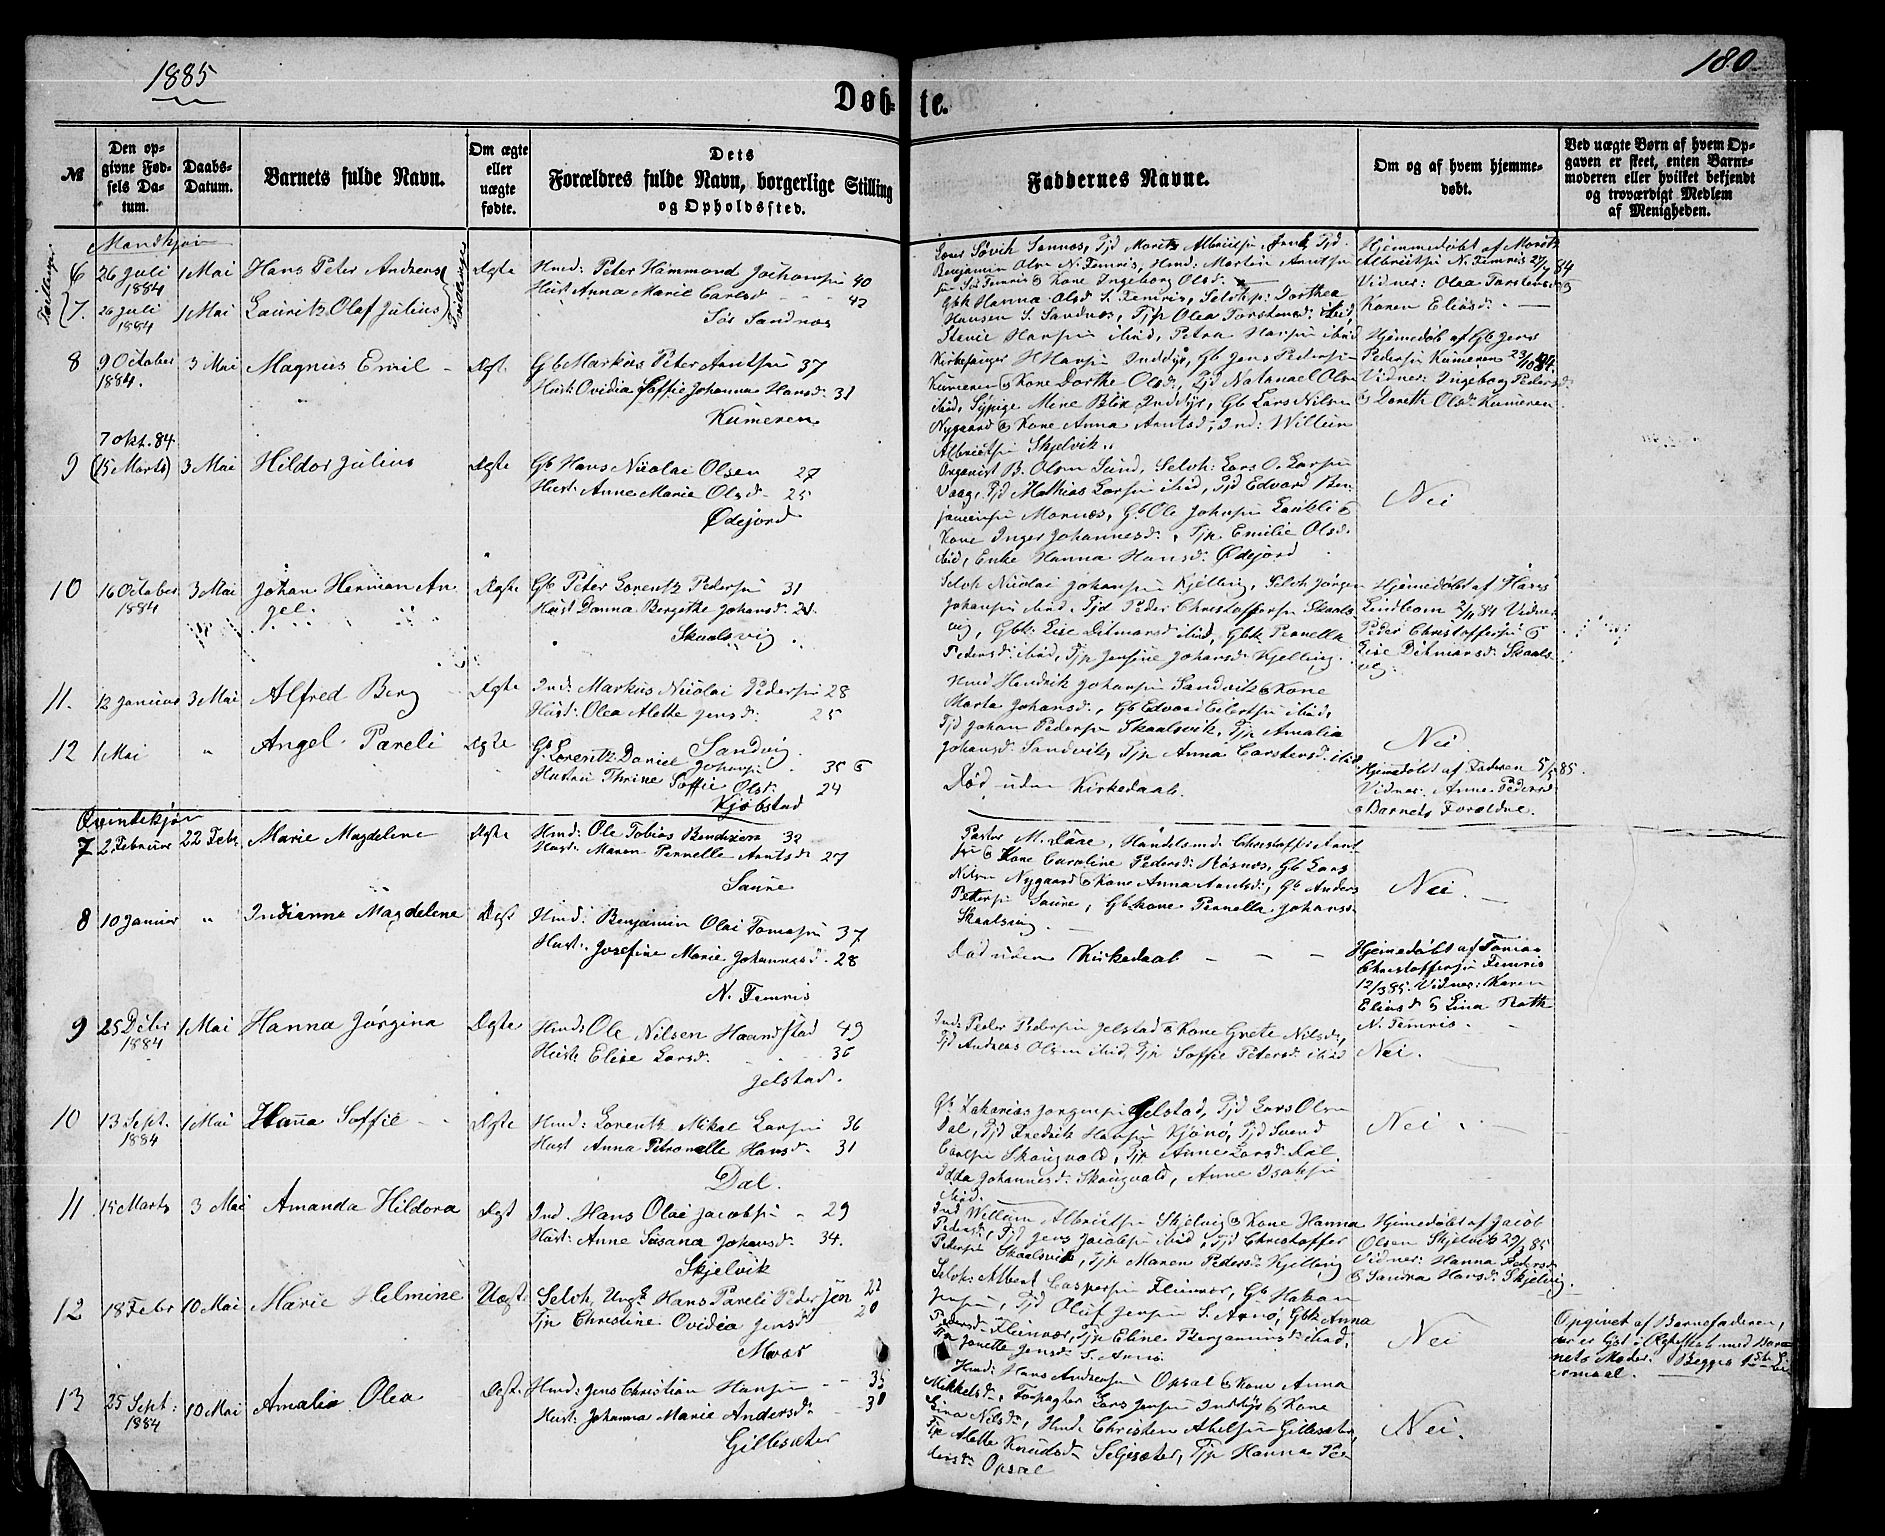 1885
180
Døbte.
№
Den opgivne Fødsels Datum.
Daabs-Datum.
Barnets fulde Navn.
Om ægte eller uægte fødte.
Dets Forældres fulde Navn, borgerlige Stilling og Opholdssted.
Faddernes Navne.
Om og af hvem hjemmedøbt.
Ved uægte Børn af hvem Opgaven er skeet, enten Barnemoderen eller hvilket bekjendt og troværdigt Medlem af Menigheden.
Mandkjøn
6 26 Juli 1884 1 Mai Hans Peter Andreas Ægte Hmd: Peter Hammond Johansen 40
Hust: Anna Marie Carlsd - 42
7. 26 Juli 1884 1 Mai Lauritz Olaf Julius Tvillinger
Sør Sandnes
Benjamin Olsen N. Femris, Hmd: Morten Arntsen
Kone Ingeborg Olsd:
Gbk Hanna Olsd S. Femris, Selvhp: Dorthea
Hansen S. Sandnæs, Tjp Olea Torstensd ibid,
Hansen ibid, Petra Hansen ibid
Hjemmedøbt af Moritz
Albrigtsen N. Femris 27/7 84
Vidner: Olea Torstensd &
Karen Eliasd. -
8 9 October 1884. 3 Mai Magnus Emil - Ægt. Gb Markus Peter Arntsen 37
Hust: Ovidia Soffie Johanna Hansd: 31
Kumeren
Kirkesanger H Hansen Inddyr, Gb Jens Pedersen
Kumeren & Kone Dorthe Olsd:, Tjd Natanael Olsen
ibid, Sypige Mine Blix Inddyr, Gb Lars Nilsen
Nygaard & Kone Anna Arntsd:, Ind: Willum
Albrigtsen Skjelvik.
Hjemmedøb af Gb Jens
Pedersen Kumeren 23/10 84.
Vidner: Ingeborg Pedersd:
& Doreth Olsd: Kumeren
7 okt. 84.
9 (15 Marts) 3 Mai Hildor Julius Ægte Gb Hans Nicolai Olsen 27
Hust: Anne Marie Olsd - 25
Ødejord
Organist B. Olsen Sund, Selvh: Lars O. Larsen
Vaag, Tjd Mathias Larsen ibid, Tjd Edvard Ben
jaminsen Mornæs, Gb Ole Johnsen Laukli &
Kone Inger Johannesd:, Tjp Emilie Olsd.
ibid, Enke Hanna Hansd: Ødejord
Nei
10 16 October 1884 3 Mai Johan Herman An
gel. Ægte Gb Peter Lorentz Pedersen 31
Hust Danna Bergethe Johansd: 21.
Skaalsvig
Selvh Nicolai Johansen Kjelling, Selvh Jørgen
Johansen ibid. Tjd Peder Christoffersen Skaals
vig, Gbk: Lise Ditmarsd ibid, Gbk Pernella
Pedersd: ibid, Tjp Jensine Johansd: Kjelling.
Hjemedøbt af Hans
Lindbom 2/11 84 Vidner
Peder Christoffersen &
Lise Ditmarsd: Skaals
vig.
11. 12 Januar 3 Mai Alfred Berg Ægte Ind: Markus Nicolai Pedersen 28
Hust: Olea Alette Jensd: 25
Sandvig
Hmd Hendrik Johansen Sandvik & Kone
Marta Johansd:, Gb Edvard Eilertsen ibid,
Tjd Johan Pedersen Skaalsvik, Tjp Amalia
Johansd: Sandvik, Tjp Anna Carstensd. ibid
Nei
12 1 Mai " Angel Pareli Ægte Gb Lorentz Daniel Johansen 35 &
Hustru Thrine Soffie Olsd: 24
Kjøbstad
Død uden Kirkedaab.
Hjemedøbt af Faderen 5/5 85.
Vidner: Anne Pedersd
& Barnets Forældre.
Qvindekjøn
7 2 Februar 22 Febr. Marie Magdelene Ægte Hmd: Ole Tobias Bendixen 32
Hust: Maren Pernelle Arntsd: 27
Saure
Pastor M. Lare, Handelsmd: Christoffer Arnt
sen & Kone Caroline Pedersd: Røsnæs, Gb Lars
Nilsen Nygaard & Kone Anna Arntsd:, Gb Anders
Petersen Saure, Gbkone Pernella Johansd
Skaalsvig.
Nei. -
8 10 Januar " Indianna Magdelene Ægt Hmd: Benjamin Olai Tomasen 37
Hust: Josefine Marie Johannesd 28
N. Femris
Død uden Kirkedaab - - -
Hjemedøbt af Tomas
Christoffersen Femris
12/3 85. Vidner: Karen
Eliasd & Lina Roth
N. Femris.
9 25 Decbr 1884 1 Mai Hanna Jørgina Ægte Hmd: Ole Nilsen Haandstad 49
Hust: Elise Larsd: 36
Jelstad.
Ind: Peder Pedersen Jelstad & Kone Grete Nilsd:,
Tjd Andreas Olsen ibid, Tjp Soffie Petersd: ibid
Nei.
10 13 Sept. 1884 1 Mai Hanna Soffie - Ægte Hmd: Lorentz Mikal Larsen 36
Hust Anna Petronelle Hansd. 31
Dal.
Gb Zakarias Jørgensen Gjelstad, Tjd Lars Olsen
Dal, Tjd Fredrik Hansen Kjønø, Tjd Svend
Carlsen Skaugvold, Tjp Anne Larsd. Dal.
Idda Johannesd: Skaugvold, Anne Isaksen
ibid.
Nei.
11 15 Marts 3 Mai Amanda Hildora Ægt Ind. Hans Olai Jacobsen - 29
Hust: Anne Susana Johansd: 34.
Skjelvik
Ind Willum Albrigtsen Skjelvig & Kone Hanna
Petersd:, Tjd Jens Jacobsen ibid, Tjd Christoffer
Petersen Skaalsvik, Tjp Maren Pedersd: Kjelling
Hjemedøbt af Jacob
Olsen Skjelvik 29/3 85
Vidner: Hanna Petersd:
& Sandra Hansd: Skjelvig.
12 18 Febr 10 Mai Marie Helmine Uægte Selvh. Ungk: Hans Pareli Pedersen 22
Tjp Christine Ovidia Jensd 20
Mvær
Selvh: Albert Caspersen Fleinvær, Gb Hakan
Jensen, Tjd Oluf Jensen S. Arnø, Gbk Anna
Pedersd: Fleinvær, Tjp Eline Benjaminsd: ibid.
Janette Jensd: S. Arnø.
Nei
Opgivet af Barnefaderen,
der er Gjst i Ægteskab med Bar
nets Moder. Begges 1ste Lei
ermaal.
13 25 Sept: 1884 10 Mai Amalia Olea Ægt. Hmd: Jens Christian Hansen - - 35
Hust: Johanna Marie Andersd: - 30
Gillesæter
Hmd: Hans Andreasen Opsal & Kone Anna
Mikkelsd:, Forpagter Lars Jensen Inddyr & Kone
Lina Nilsd:, Hmd: Christen Abelsen Gillesæter,
Tjp Alette Knudsd: Seljesæter, Tjp Hanna Pe
dersd: Opsal
Nei.